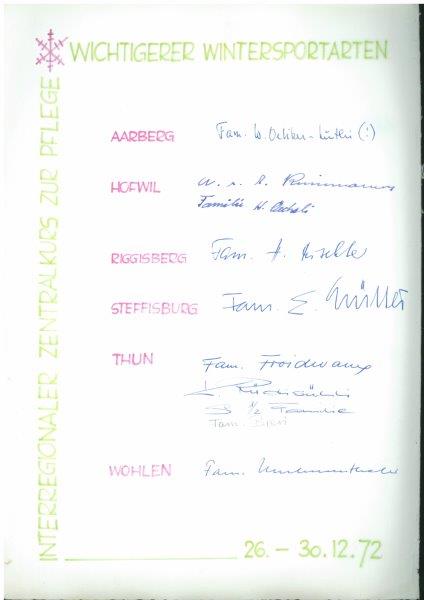 WICHTIGERER WINTERSPORTARTEN
INTERREGIONALER ZENTRALKURS ZUR PFLEGE
AARBERG
Fam. W. Oehler-Lüthi (!)
HOFWIL
Familie H.
RIGGISBERG
Fam. A.
STEFFISBURG
Fam. E. Müller
THUN
Fam. Froidevaux
½ Familie
Fam.
WOHLEN
Fam.
26. – 30.12.72